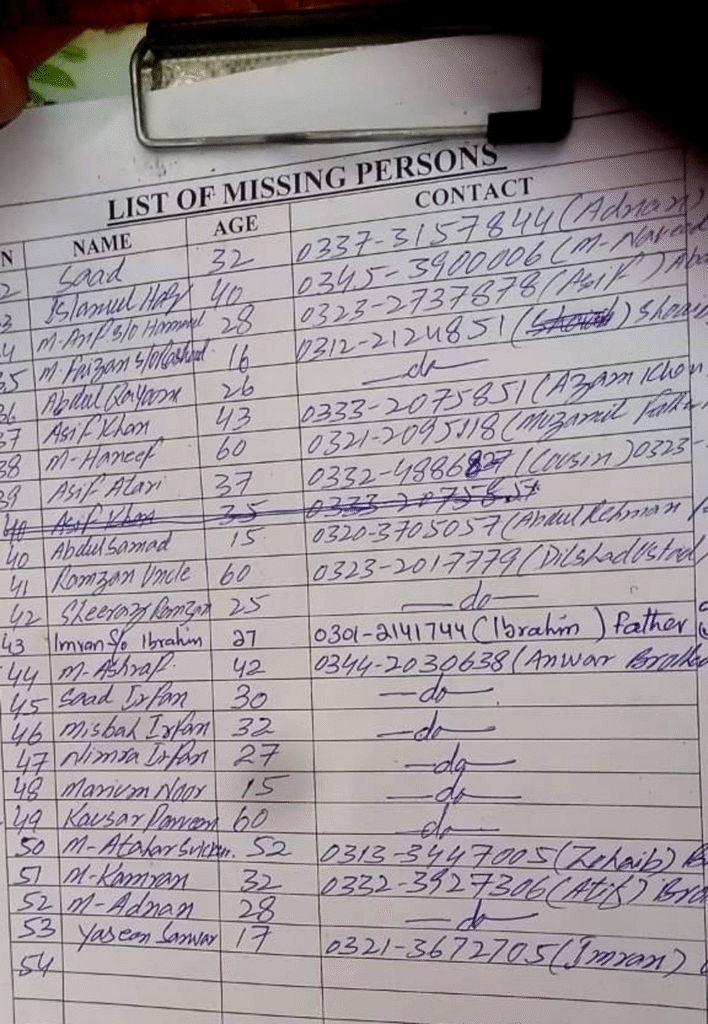 LIST OF MISSING PERSONS
N NAME AGE CONTACT
2 Saad 32 0337-3157844 (Adnan)
3 Islamul Haq 40 0345-3900006 (M-Naveed
4 M-Arif s/o 28 0323-2737878 (Asif)
35 M-Faizan s/o Rashid 16 0312-2124851 ( ) Shoaib
36 Abdul Qayoom 26 -do-
37 Asif Khan 43 0333-2075851 (Azam Khan
38 M-Haneef 60 0321-2095118 (Muzamil Father
39 Asif Alavi 37 0332-4886827 (Cousin) 0323-
40 Asif Khan 35 0333-2075857
40 Abdul Samad 15 0320-3705057 (Abdul Rehman
41 Ramzan Uncle 60 0323-2017779 (Dilshad Ustad
42 Sheeraz Ramzan 25 -do-
43 Imran S/o Ibrahim 27 0301-2141744 (Ibrahim) father
44 M-Ashraf. 42 0344-2030638 (Anwar Brother
45 Saad Irfan 30 -do-
46 Misbah Irfan 32 -do-
47 Nimra Irfan 27 -do-
48 Marium Noor 15 -do-
49 Kausar Parveen 60 -do-
50 M-Atahar 52 0313-3447005 (Zohaib) B
51 M-Kamran 32 0332-3927306 (Atif) Bro
52 M-Adnan 28 -do-
53 Yaseen Sarwar 17 0321-3672705 (Imran)
54